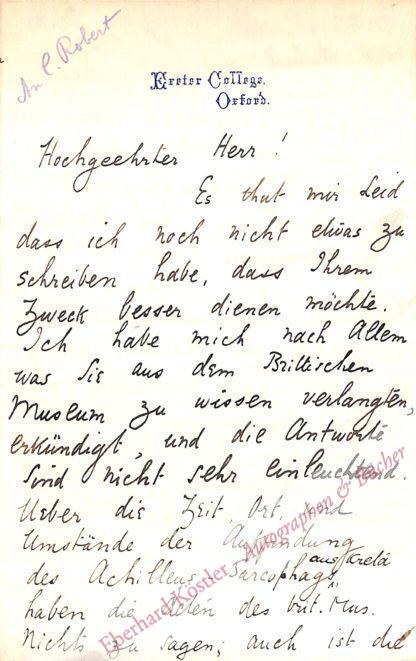 An C. Robert
Exeter College,
Oxford.
Hochgeehrter Herr!
Es thut mir Leid
dass ich noch nicht etwas zu
schreiben habe, dass Ihrem
Zweck besser dienen möchte.
Ich habe mich nach Allem
was Sie aus dem Brittischen
Museum zu wissen verlangten,
erkündigt, und die Antworte
sind nicht sehr einleuchtend.
Ueber die Zeit, Ort, und
Umstände der Auffindung
des Achilleus Sarcophags aus Kreta
haben die Acten des brit. Mus.
Nichts zu sagen; auch ist die
Eberhard Köstler Autographen & Bücher